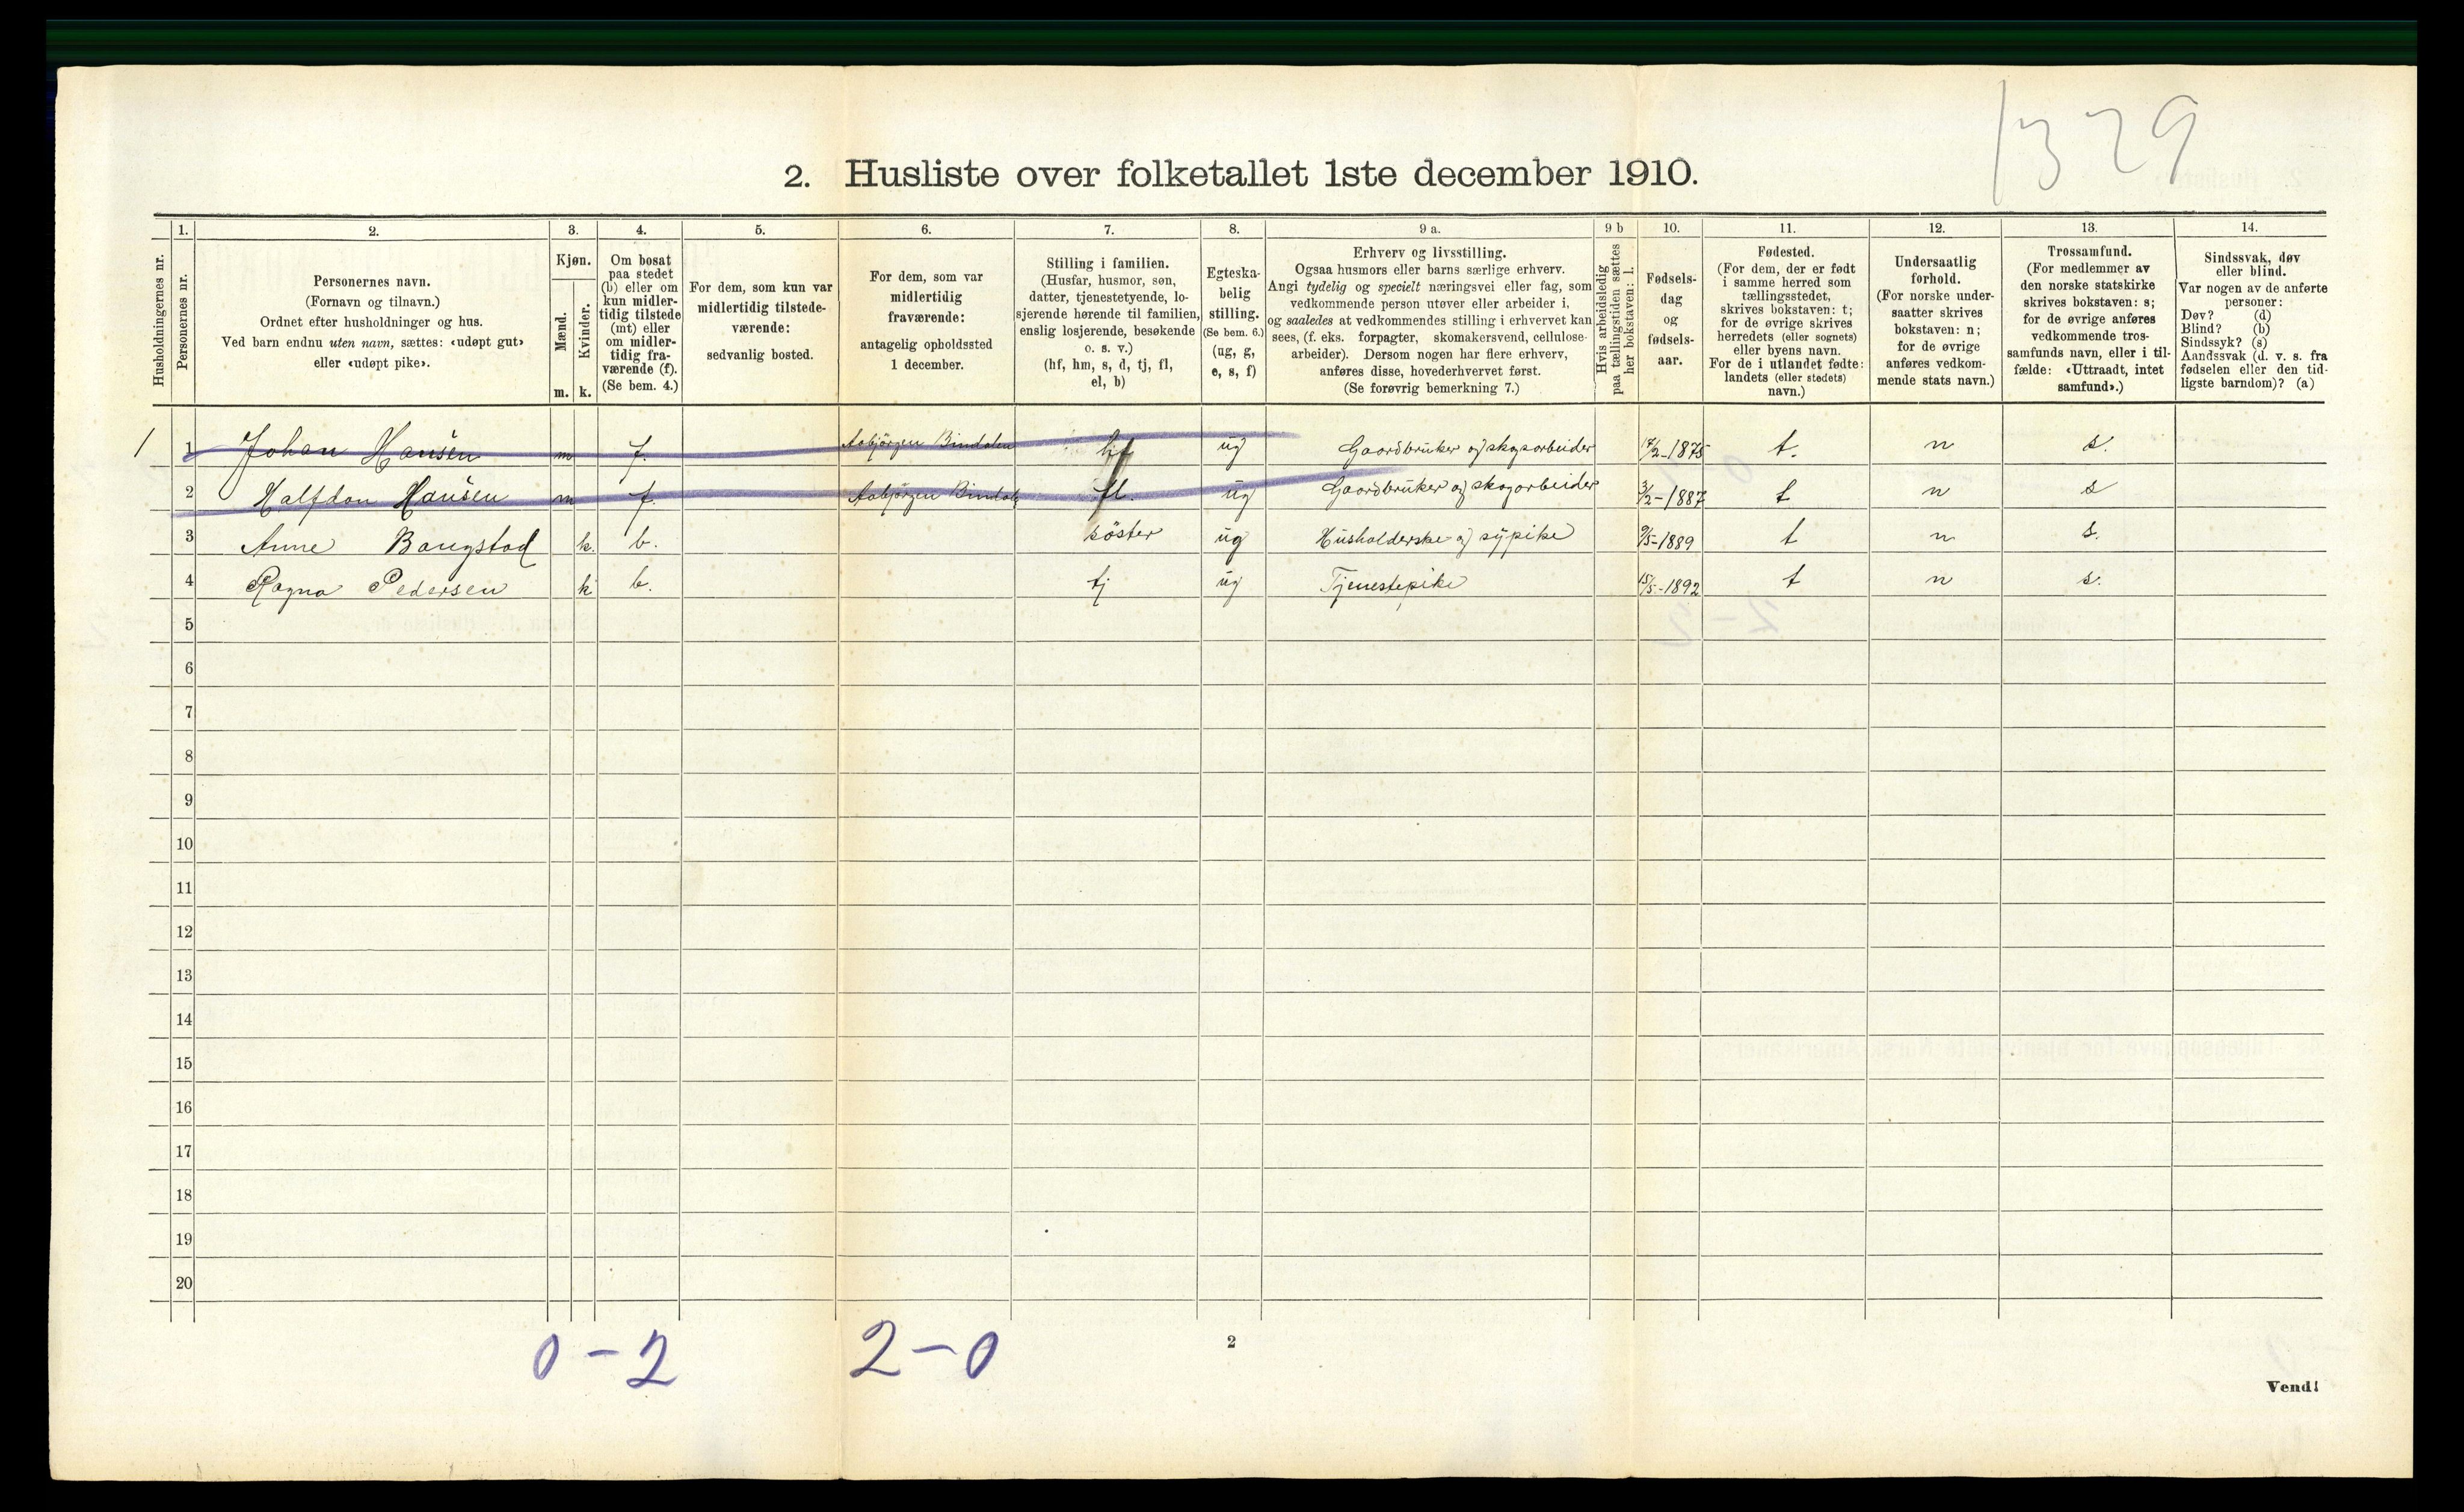 1329
2. Husliste over folketallet 1ste december 1910.
Husholdningernes nr.
1.
Personernes nr.
2.
Personernes navn.
(Fornavn og tilnavn.)
Ordnet efter husholdninger og hus.
Ved barn endnu uten navn, sættes: «udøpt gut»
eller «udøpt pike».
3.
Kjøn.
Mænd.
m.
Kvinder.
k.
4.
Om bosat
paa stedet
(b) eller om
kun midler-
tidig tilstede
(mt) eller
om midler-
tidig fra-
værende (f).
(Se bem. 4.)
5.
For dem, som kun var
midlertidig tilstede-
værende:
sedvanlig bosted.
6.
For dem, som var
midlertidig
fraværende:
antagelig opholdssted
1 december.
7.
Stilling i familien.
(Husfar, husmor, søn,
datter, tjenestetyende, lo-
sjerende hørende til familien,
enslig losjerende, besøkende
o. s. v.)
(hf, hm, s, d, tj, fl,
el, b)
8.
Egteska-
belig
stilling.
(Se bem. 6.)
(ug, g,
e, s, f)
9 a.
Erhverv og livsstilling.
Ogsaa husmors eller barns særlige erhverv.
Angi tydelig og specielt næringsvei eller fag, som
vedkommende person utøver eller arbeider i,
og saaledes at vedkommendes stilling i erhvervet kan
sees, (f. eks. forpagter, skomakersvend, cellulose-
arbeider). Dersom nogen har flere erhverv,
anføres disse, hovederhvervet først.
(Se forøvrig bemerkning 7.)
9 b
Hvis arbeidsledig
paa tællingstiden sættes
her bokstaven: l.
10.
Fødsels-
dag
og
fødsels-
aar.
11.
Fødested.
(For dem, der er født
i samme herred som
tællingsstedet,
skrives bokstaven: t;
for de øvrige skrives
herredets (eller sognets)
eller byens navn.
For de i utlandet fødte:
landets (eller stedets)
navn.)
12.
Undersaatlig
forhold.
(For norske under-
saatter skrives
bokstaven: n;
for de øvrige
anføres vedkom-
mende stats navn.)
13.
Trossamfund.
(For medlemmer av
den norske statskirke
skrives bokstaven: s;
for de øvrige anføres
vedkommende tros-
samfunds navn, eller i til-
fælde: «Uttraadt, intet
samfund».)
14.
Sindssvak, døv
eller blind.
Var nogen av de anførte
personer:
Døv? (d)
Blind? (b)
Sindssyk? (s)
Aandssvak (d. v. s. fra
fødselen eller den tid-
ligste barndom)? (a)
1 1 Johan Hansen m f. Aabjörgen Bindalen hf ug Gaardbruker og skogsarbeider 17/2-1875 t. n s.
2 Halfdan Hansen m f. Aabjörgen Bindalen fl. ug Gaardbruker og skogarbeider 3/2-1887 t n s
3 Anne Bangstad k. b. söster ug Husholderske og sypike 9/5-1889 t n s.
4 Ragna Pedersen k b. tj ug Tjenestepike 15/5-1892 t n s.
5
6
7
8
9
10
11
12
13
14
15
16
17
18
19
20
0-2 2-0
2
Vend!